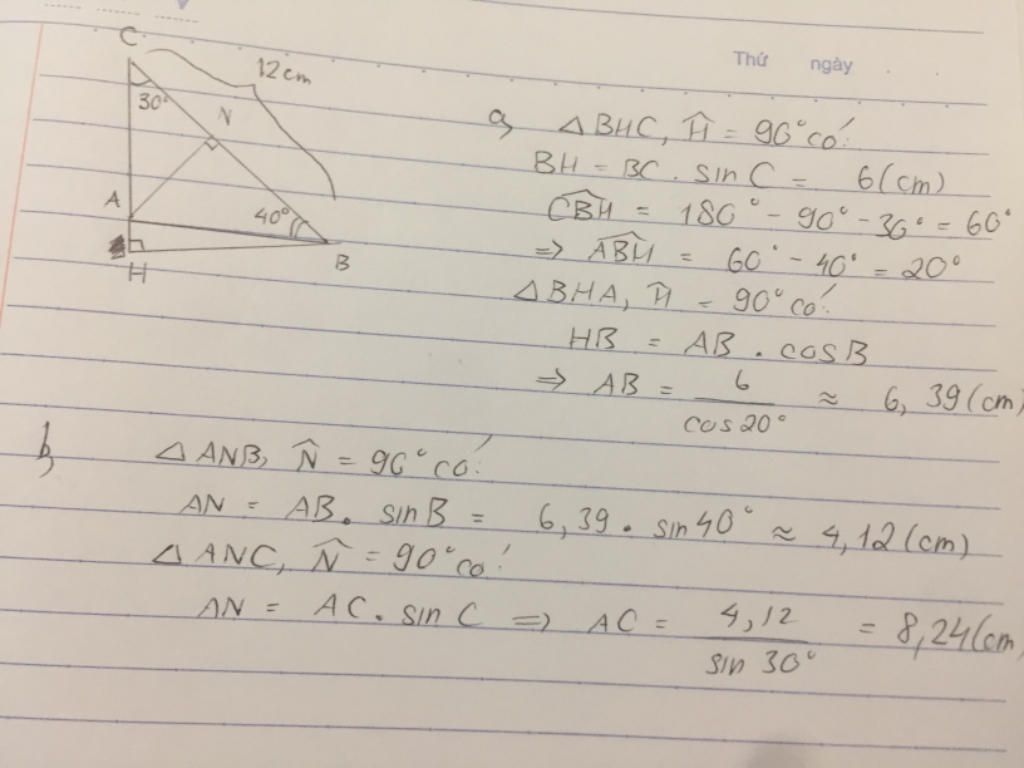 Thứ ngày
C
12 cm
30°
N
A
40°
H
B
a, △BHC, Ĥ = 90° có:
BH = BC . sin C = 6 (cm)
CBĤ = 180° - 90° - 30° = 60°
=> ABĤ = 60° - 40° = 20°
△BHA, Ĥ = 90° có:
HB = AB . cos B
=> AB = 6 / cos 20° ≈ 6,39 (cm)
b, △ANB, N̂ = 90° có:
AN = AB . sin B = 6,39 . sin 40° ≈ 4,12 (cm)
△ANC, N̂ = 90° có:
AN = AC . sin C => AC = 4,12 / sin 30° = 8,24 (cm